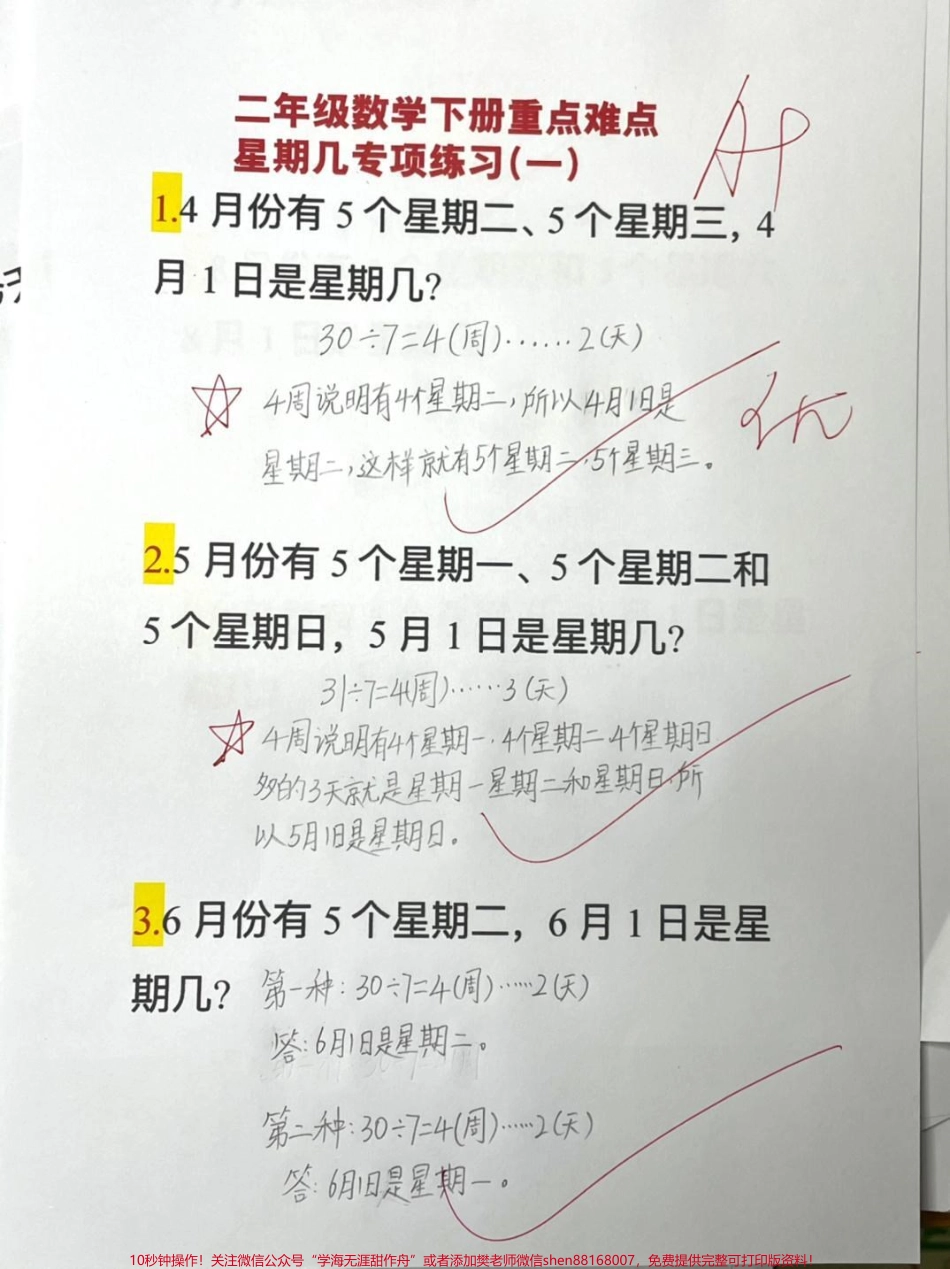 二年级数学下册重点难点
星期几专项练习(一)
A+
1.4月份有5个星期二、5个星期三，4
月1日是星期几?
30÷7=4(周)……2(天)
4周说明有4个星期二,所以4月1日是
星期二,这样就有5个星期二.5个星期三。
优
2.5月份有5个星期一、5个星期二和
5个星期日，5月1日是星期几?
31÷7=4(周)……3(天)
4周说明有4个星期一.4个星期二4个星期日
多的3天就是星期一星期二和星期日.所
以5月1日是星期日。
3.6月份有5个星期二，6月1日是星
期几?
第一种:30÷7=4(周)……2(天)
答:6月1日是星期二。
第二种:30÷7=4(周)……2(天)
答:6月1日是星期一。
10秒钟操作！关注微信公众号“学海无涯甜作舟”或者添加樊老师微信shen88168007，免费提供完整可打印版资料！